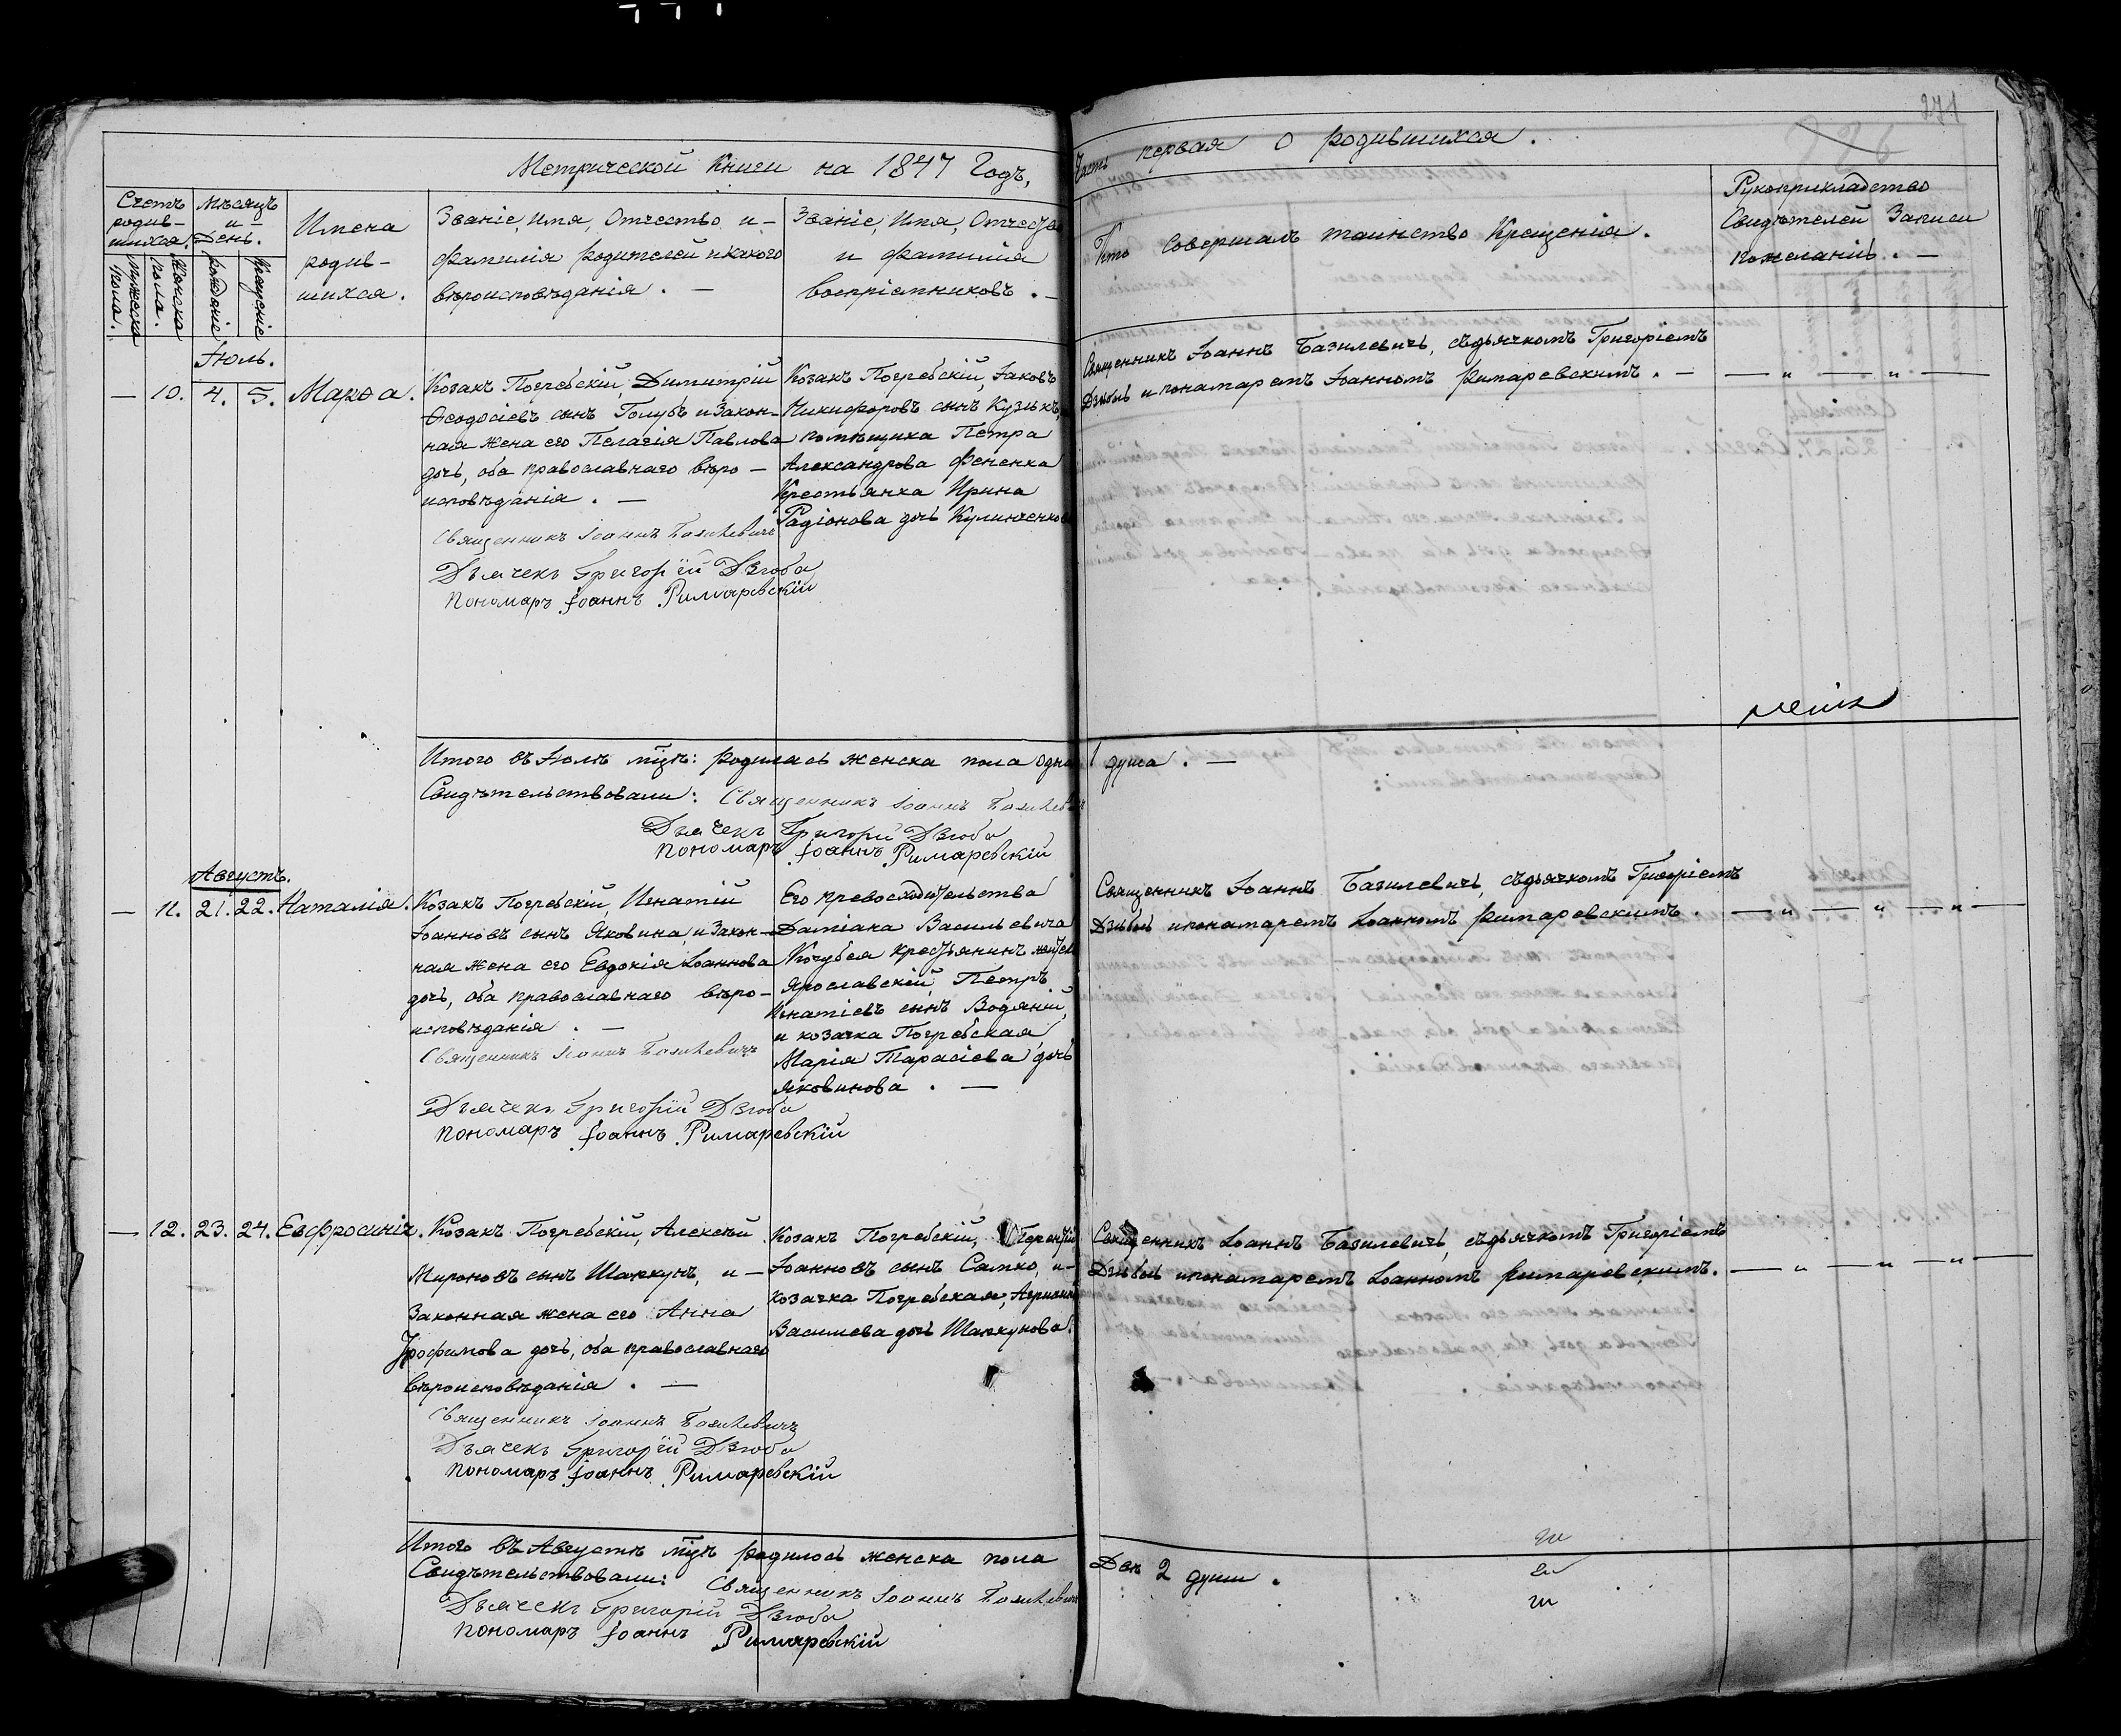 271
Метрической Книги на 1847 Годъ,
Часть первая О родившихся.
Счетъ родив-шихся.
Мужеска пола.
Женска пола.
Мѣсяцъ и День.
Рожденіе
Крещеніе
Имена
родив-
шихся.
Званіе, Имя, Отчество и-
Фамилія Родителей и какого
вѣроисповѣданія. —
Званіе, Имя, Отчество
и Фамилія
Воспріемниковъ. —
Кто Совершалъ таинство Крещенія.
Рукоприкладство
Свидѣтелей Записи
пожеланію. —
Іюль.
— 10. 4. 5. Марѳа.
Козакъ Погребскій, Димитрій
Ѳеодосіевъ сынъ Голубъ и Закон-
ная жена его Пелагія Павлова
дочь, оба православнаго вѣро-
исповѣданія. —
Козакъ Погребскій, Іаковъ
Никифоровъ сынъ Кузько,
помѣщика Петра
Александрова Фененка
Крестьянка Ирина
Радіонова дочь
Священникъ Іоаннъ Базилевичь, съдьячкомъ Григоріемъ
Дзюбою ипонамаремъ Іоанномъ Римаревскимъ. —
— „ — „ —
Священникъ Іоаннъ Базилевичъ
Дьячекъ Григорій Дзюба
Пономаръ Іоаннъ Римаревскій
Итого въ Іюлѣ мцѣ: родилась женска пола одна 1 душа. —
Свидѣтельствовали: Священникъ Іоаннъ Базилевичъ
Дьячекъ Григорій Дзюба
Пономаръ Іоаннъ Римаревскій
Августъ.
— 11. 21. 22. Наталія.
Козакъ Погребскій, Игнатій
Іоанновъ сынъ Яковина, и Закон-
ная жена его Евдокія Іоаннова
дочь, оба православнаго вѣро-
исповѣданія. —
Его превосходительства
Даміана Васильевича
Кочубея крестьянинъ
Ярославскій, Петръ
Игнатіевъ сынъ Водяній,
и козачка Погребская,
Марія Тарасіева дочь
Яковинова. —
Священникъ Іоаннъ Базилевичь, съдьячкомъ Григоріемъ
Дзюбою ипонамаремъ Іоанномъ Римаревскимъ.
— „ — „ — „ —
Священникъ Іоаннъ Базилевичъ
Дьячекъ Григорій Дзюба
Пономаръ Іоаннъ Римаревскій
— 12. 23. 24. Евфросинія.
Козакъ Погребскій, Алексѣй
Мироновъ сынъ Шаркунъ, и —
Законная жена его Анна
Трофимова дочь, оба православнаго
вѣроисповѣданія. —
Козакъ Погребскій, Терентій
Іоанновъ сынъ Сапко, и-
козачка Погребская,
Василева дочь Шаркунова.
Священникъ Іоаннъ Базилевичь, съдьячкомъ Григоріемъ
Дзюбою ипонамаремъ Іоанномъ Римаревскимъ.
— „ — „ — „ —
Священникъ Іоаннъ Базилевичъ
Дьячекъ Григорій Дзюба
Пономаръ Іоаннъ Римаревскій
Итого въ Августѣ мцѣ родилось женска пола Двѣ 2 души.
Свидѣтельствовали: Священникъ Іоаннъ Базилевичъ
Дьячекъ Григорій Дзюба
Пономаръ Іоаннъ Римаревскій